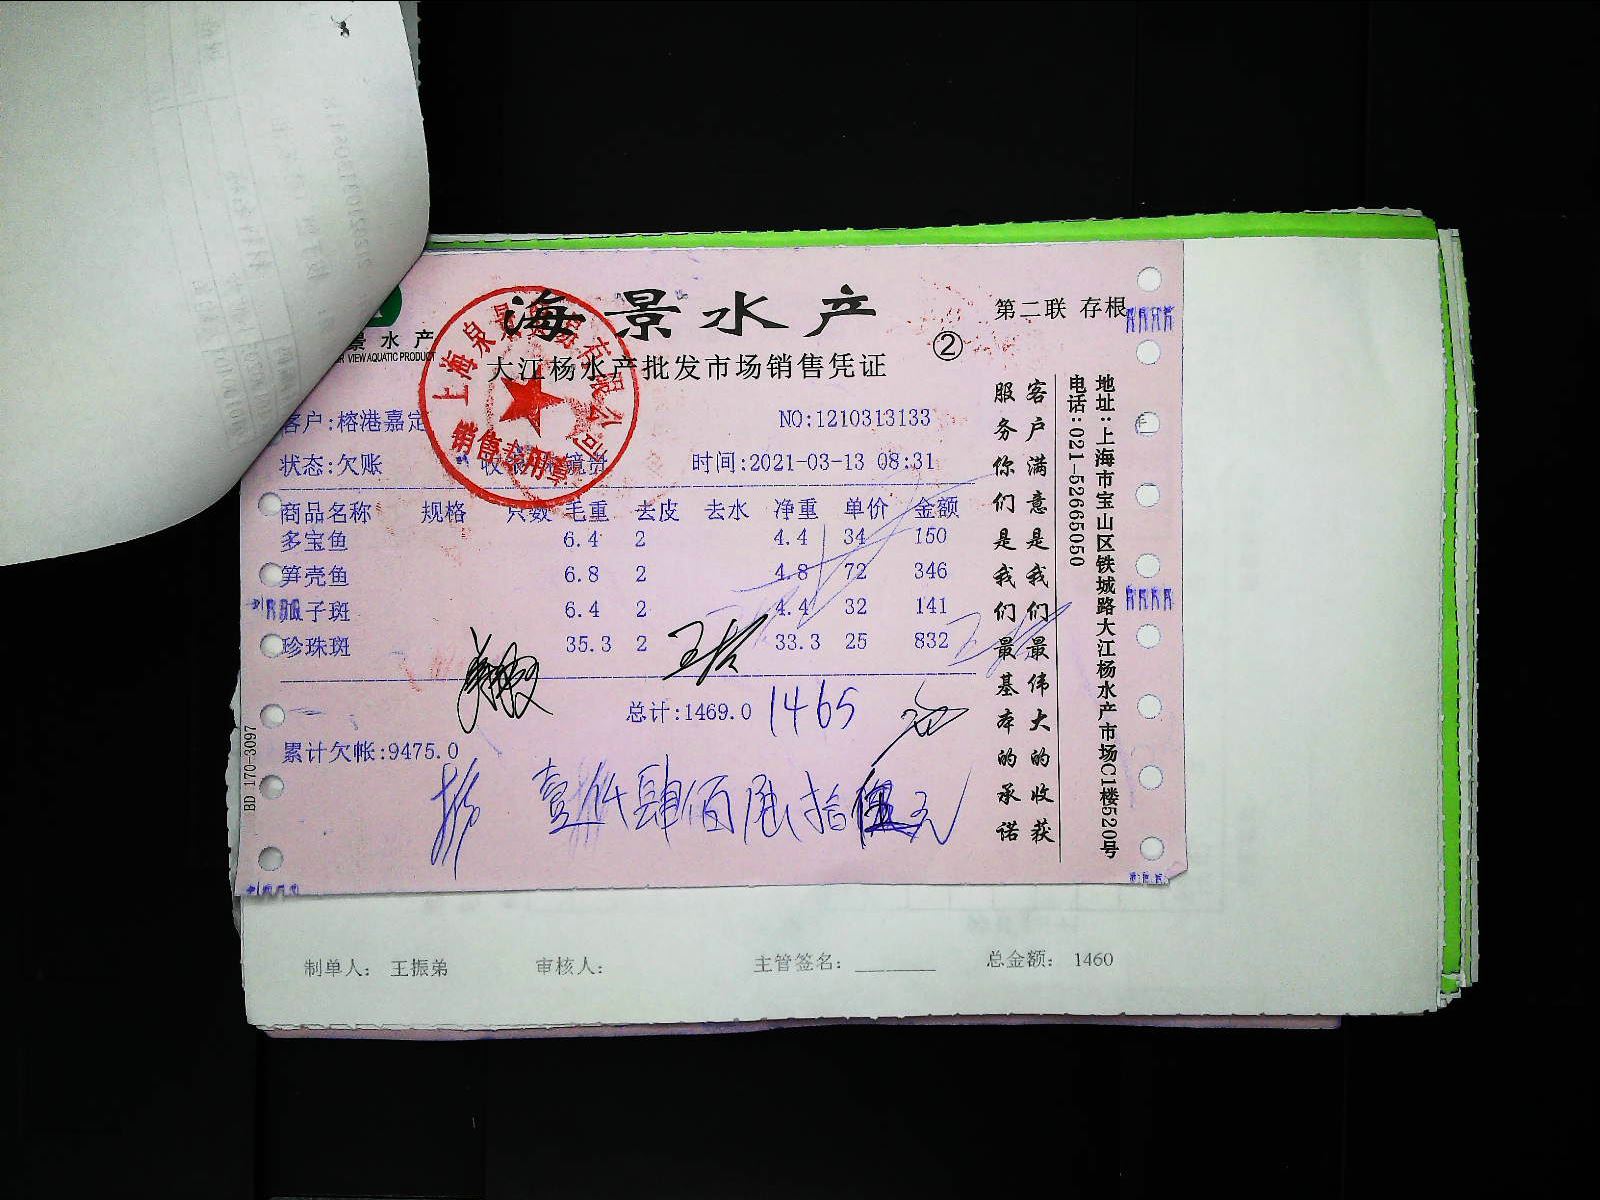 海景水产
第二联 存根
景水产
VIEW AQUATIC PRODUCT
大江杨水产批发市场销售凭证
②
上海泉景
有限公司
销售专用章
客户:榕港嘉定
NO:1210313133
状态:欠账
时间:2021-03-13 08:31
商品名称 规格 只数 毛重 去皮 去水 净重 单价 金额
多宝鱼 6.4 2 4.4 34 150
笋壳鱼 6.8 2 4.8 72 346
瓜子斑 6.4 2 4.4 32 141
珍珠斑 35.3 2 33.3 25 832
总计:1469.0 1465
累计欠帐:9475.0
壹仟肆佰陆拾伍元
客户满意是我们最伟大的收获
服务你们是我们最基本的承诺
地址:上海市宝山区铁城路大江杨水产市场C1楼520号
电话:021-52665050
BD 170-3097
制单人: 王振弟 审核人: 主管签名: 总金额: 1460